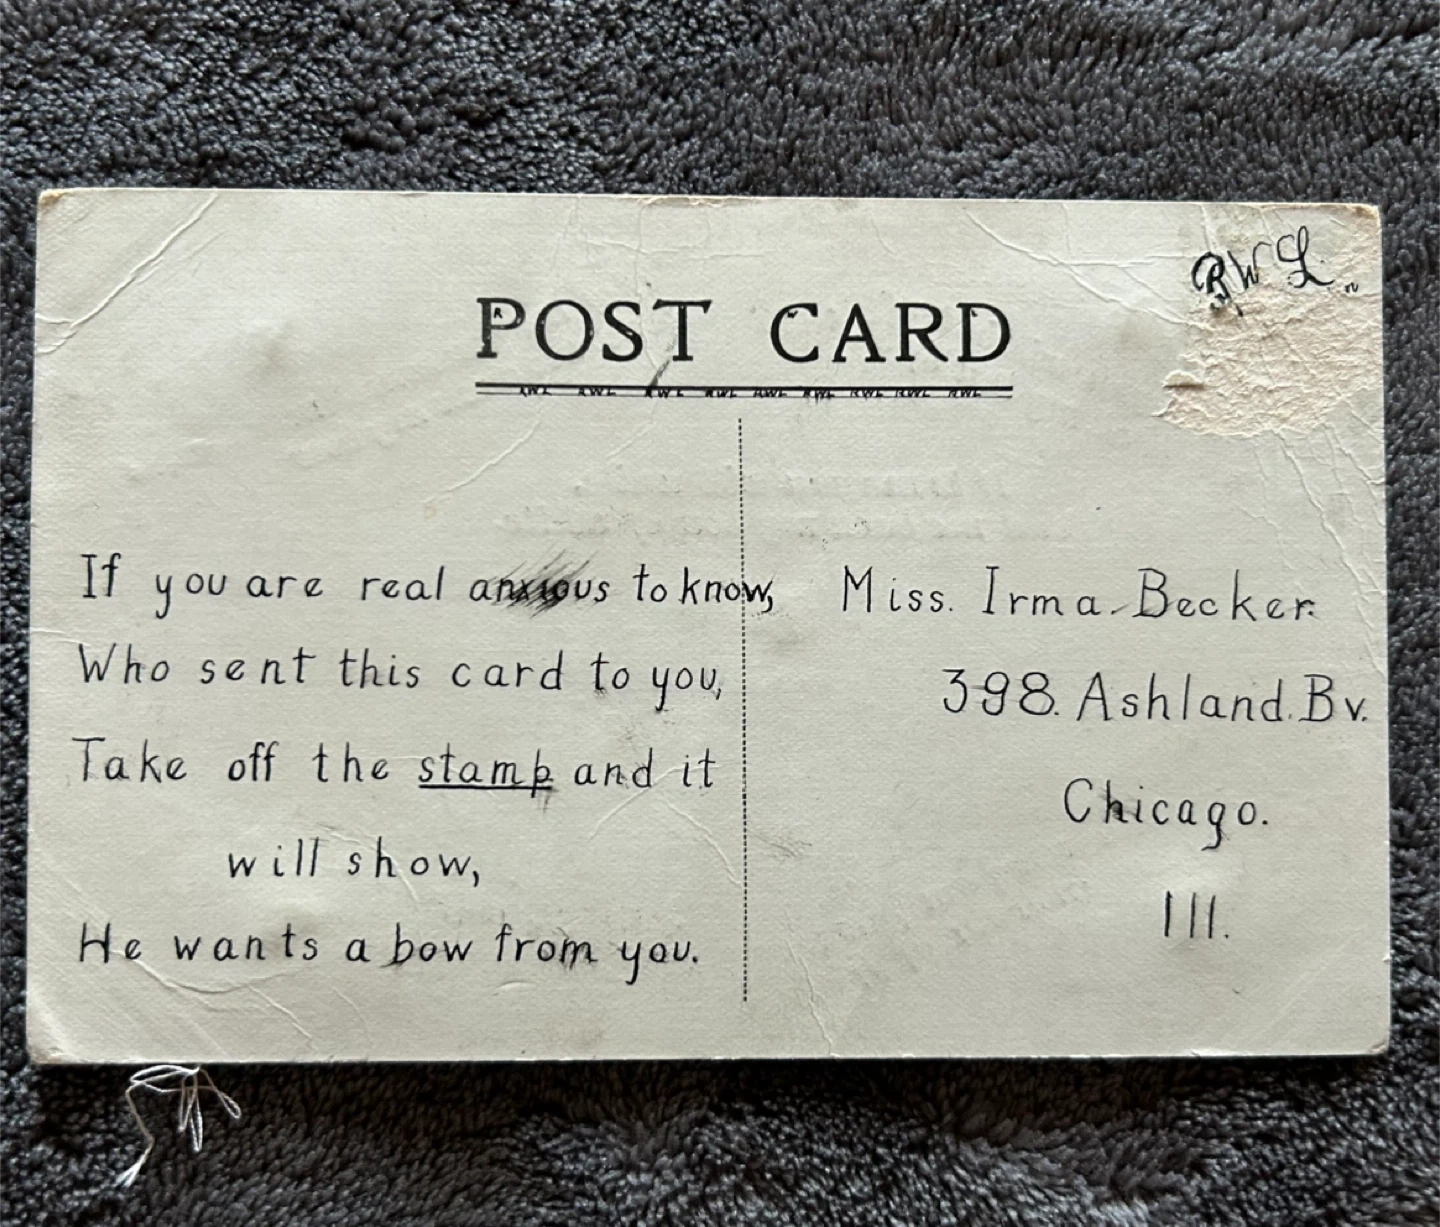 RWL
POST CARD
RWL RWL RWL RWL RWL RWL RWL RWL RWL
If you are real anxious to know,
Who sent this card to you,
Take off the stamp and it
will show,
He wants a bow from you.
Miss. Irma Becker.
398. Ashland. Bv.
Chicago.
Ill.